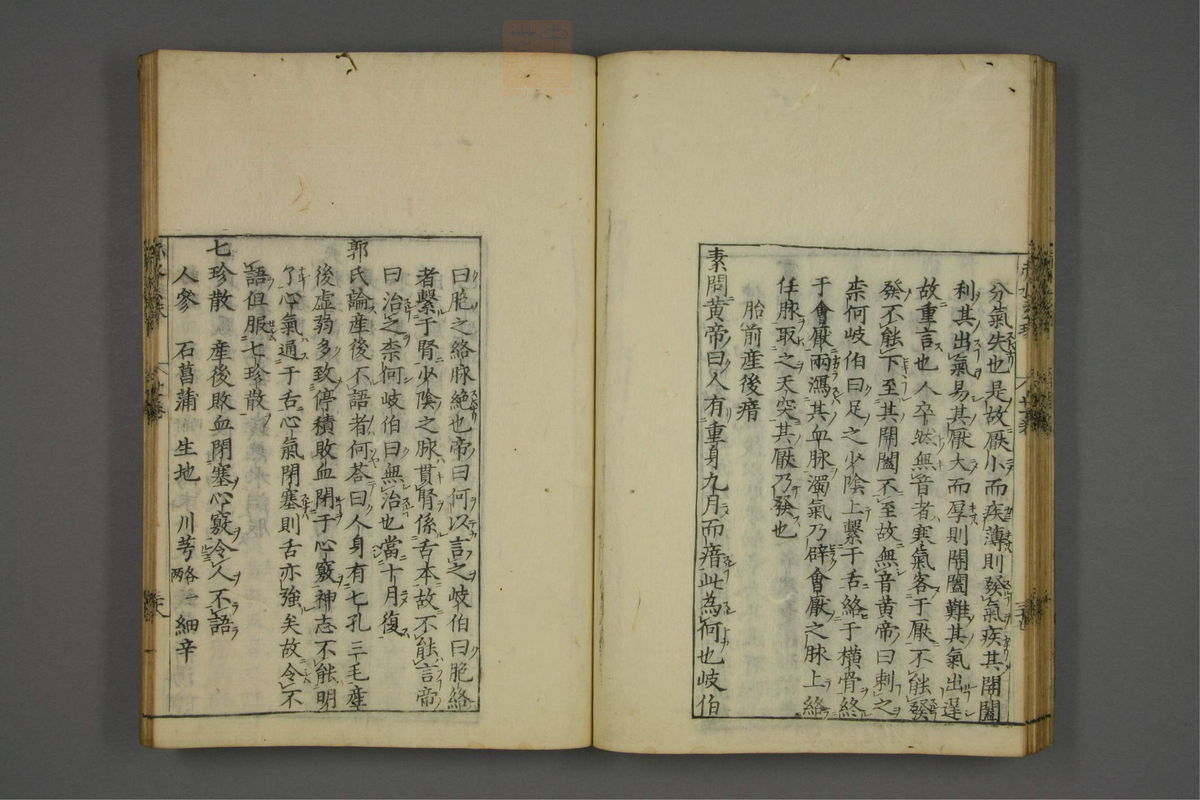 分氣失也是故厭小而疾薄則發氣疾其開闔
利其出氣易其厭大而厚則開闔難其氣出遲
故重言也人卒然無音者寒氣客于厭不能發
發不能下至其開闔不至故無音黃帝曰刺之
柰何岐伯曰足之少陰上繫于舌絡于橫骨終
于會厭兩瀉其血脉濁氣乃辟會厭之脉上絡
任脉取之天突其厭乃發也
胎前産後瘖
素問黃帝曰人有重身九月而瘖此為何也岐伯
曰胞之絡脉絶也帝曰何以言之岐伯曰胞絡
者繫于腎少陰之脉貫腎係舌本故不能言帝
曰治之柰何岐伯曰無治也當十月復
郭氏論産後不語者何荅曰人身有七孔三毛産
後虛弱多致停積敗血閉于心竅神志不能明
了心氣通于舌心氣閉塞則舌亦強矣故令不
語但服七珍散
七珍散 産後敗血閉塞心竅令人不語
人參 石菖蒲 生地 川芎各一兩 細辛